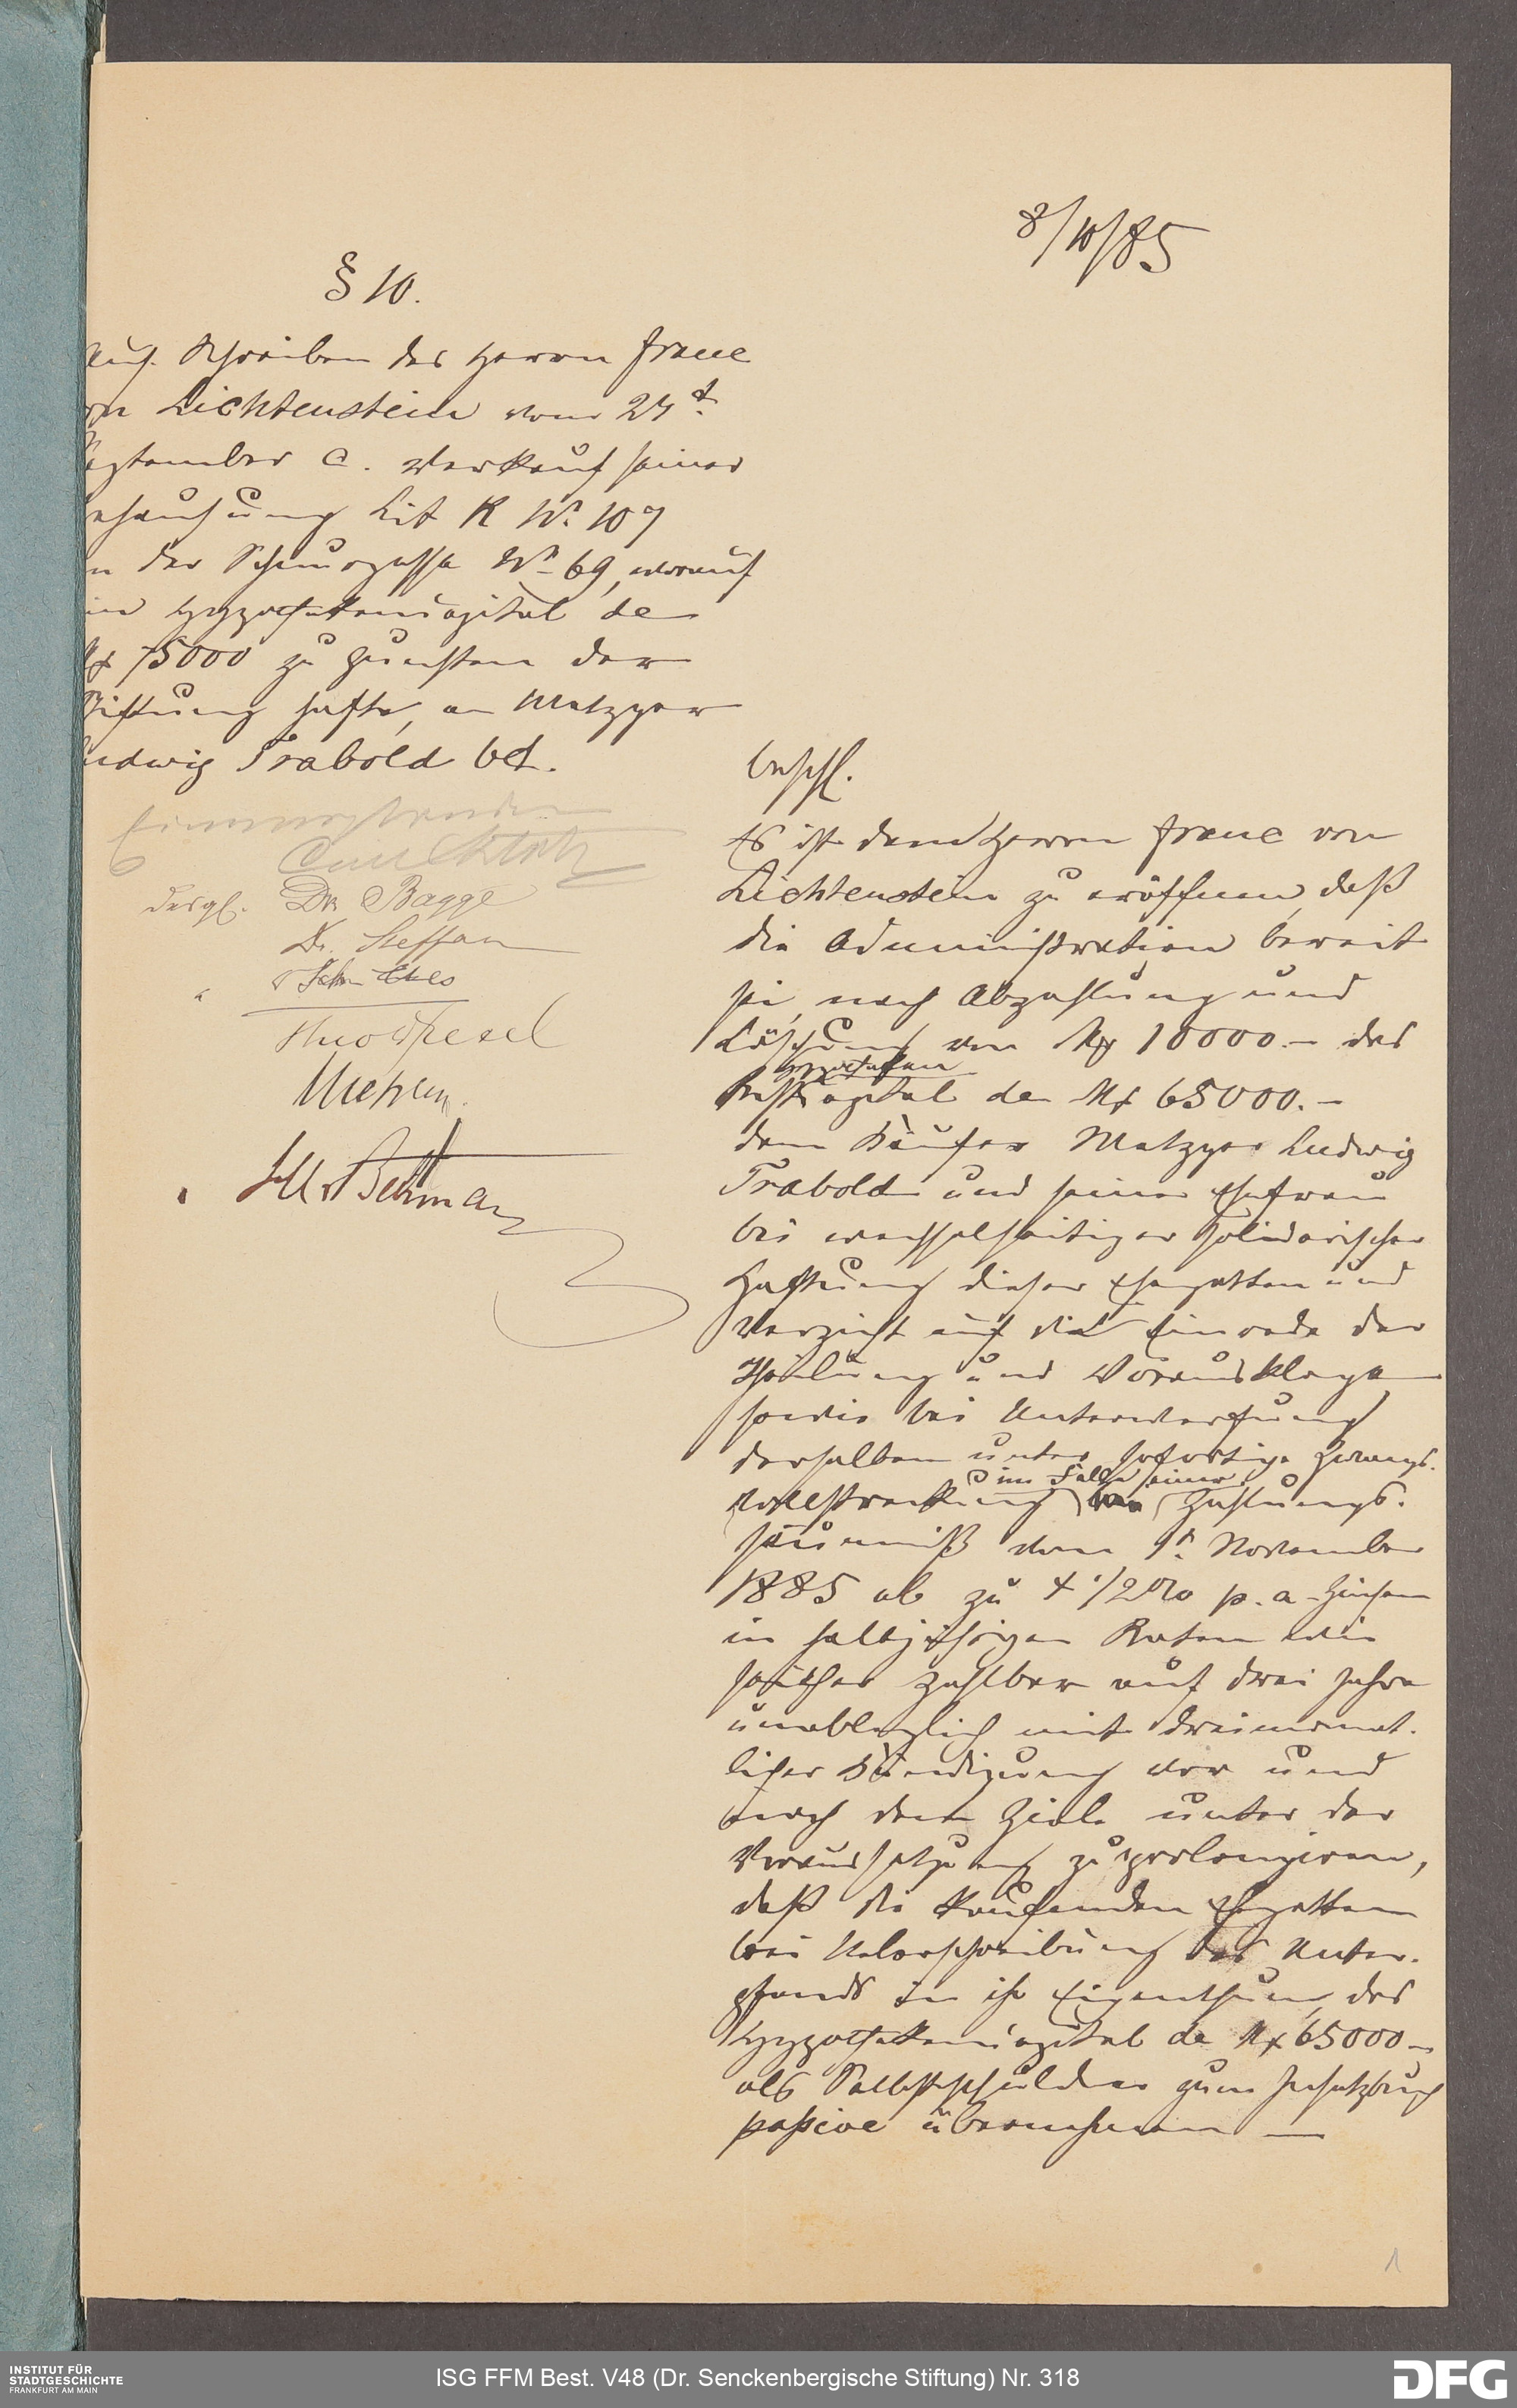 8/10/85
§ 10.
Auf Schreiben des Herrn Franc
von Lichtenstein vom 24t.
September c. Verkauf seiner
Behausung Lit K No. 107
in der Schnurgasse No 69, worauf
ein Hypothekencapital de
M 75000 zu Gunsten der
Stiftung hafte, an Metzger
Ludwig Trabold bet.
Einverstanden
desgl. Dr. Bagge
Dr. Steffan
beschl.
Es ist dem Herrn Franc von
Lichtenstein zu eröffnen, daß
die Administration bereit
sei, nach Abzahlung und
Löschung von M 10000.– das
Hypotheken
Restcapital de M 65000.–
dem Käufer Metzger Ludwig
Trabold und seiner Ehefrau
bei wechselseitiger solidarischer
Haftung dieser Ehegatten und
Verzicht auf die Einrede der
Theilung und Vorausklage,
sowie bei Unterwerfung
derselben unter sofortige Zwangs-
im Falle einer
vollstreckung Zahlungs-
säumniß vom 1t. November
1885 ab zu 4 1/2 % p. a. Zinsen
in halbjährigen Raten wie
seither zahlbar auf drei Jahre
unableglich mit dreimonat-
licher Kündigung vor und
nach dem Ziele unter der
Voraussetzung zu prolongiren,
daß die kaufenden Ehegatten
bei Ueberschreibung des Unter-
pfands in ihr Eigenthum, das
Hypothekencapital de M 65000–
als Selbstschuldner zum Insatzbuch
passive übernehmen —
1
INSTITUT FÜR
STADTGESCHICHTE
FRANKFURT AM MAIN
ISG FFM Best. V48 (Dr. Senckenbergische Stiftung) Nr. 318
DFG